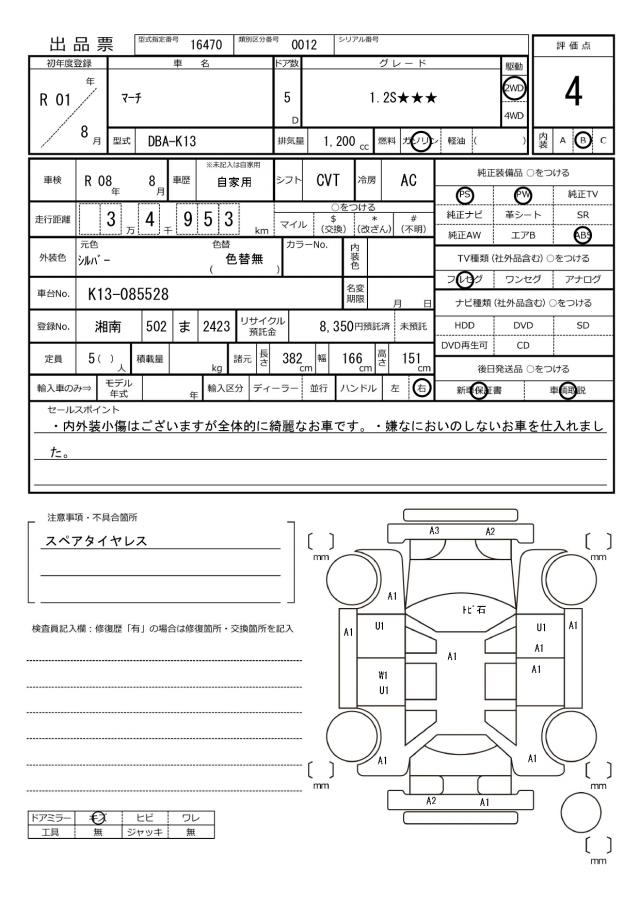 出品票
型式指定番号 16470 類別区分番号 0012 シリアル番号
初年度登録 車名 ドア数 グレード 駆動 評価点
R 01 年 8 月 マーチ 5 D 1.2S★★★ 2WD 4WD 4
型式 DBA-K13 排気量 1,200 cc 燃料 ガソリン 軽油 ( ) 内装 A B C
車検 R 08 年 8 月 車歴 ※未記入は自家用 自家用 シフト CVT 冷房 AC
走行距離 3 万 4 千 9 5 3 km ○をつける
マイル $ (交換) * (改ざん) # (不明)
外装色 元色 シルバー 色替 ( 色替無 ) カラーNo. 内装色
車台No. K13-085528 名変期限 月 日
登録No. 湘南 502 ま 2423 リサイクル預託金 8,350円預託済 未預託
定員 5( ) 人 積載量 kg 諸元 長さ 382 cm 幅 166 cm 高さ 151 cm
輸入車のみ⇒ モデル年式 年 輸入区分 ディーラー 並行 ハンドル 左 右
純正装備品 ○をつける
PS PW 純正TV
純正ナビ 革シート SR
純正AW エアB ABS
TV種類 (社外品含む) ○をつける
フルセグ ワンセグ アナログ
ナビ種類 (社外品含む) ○をつける
HDD DVD SD
DVD再生可 CD
後日発送品 ○をつける
新車保証書 車輌取説
セールスポイント
・内外装小傷はございますが全体的に綺麗なお車です。・嫌なにおいのしないお車を仕入れまし
た。
注意事項・不具合箇所
スペアタイヤレス
検査員記入欄：修復歴「有」の場合は修復箇所・交換箇所を記入
ドアミラー キズ ヒビ ワレ
工具 無 ジャッキ 無
A3 A2
mm mm
A1
トビ石
A1 U1 U1 A1
A1 A1
W1 A1
U1
A1 A1
mm mm
A2 A1
mm